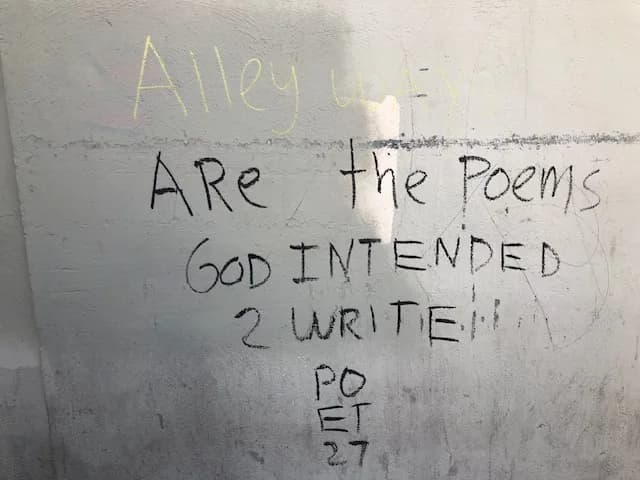 Alley way
ARe the Poems
GOD INTENDED
2 WRITE!!
PO
ET
27